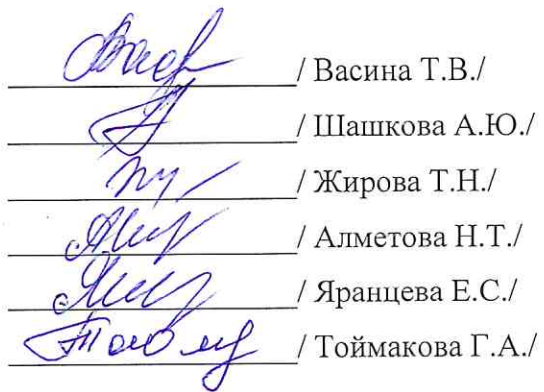 / Васина Т.В./
/ Шашкова А.Ю./
/ Жирова Т.Н./
/ Алметова Н.Т./
/ Яранцева Е.С./
/ Тоймакова Г.А./